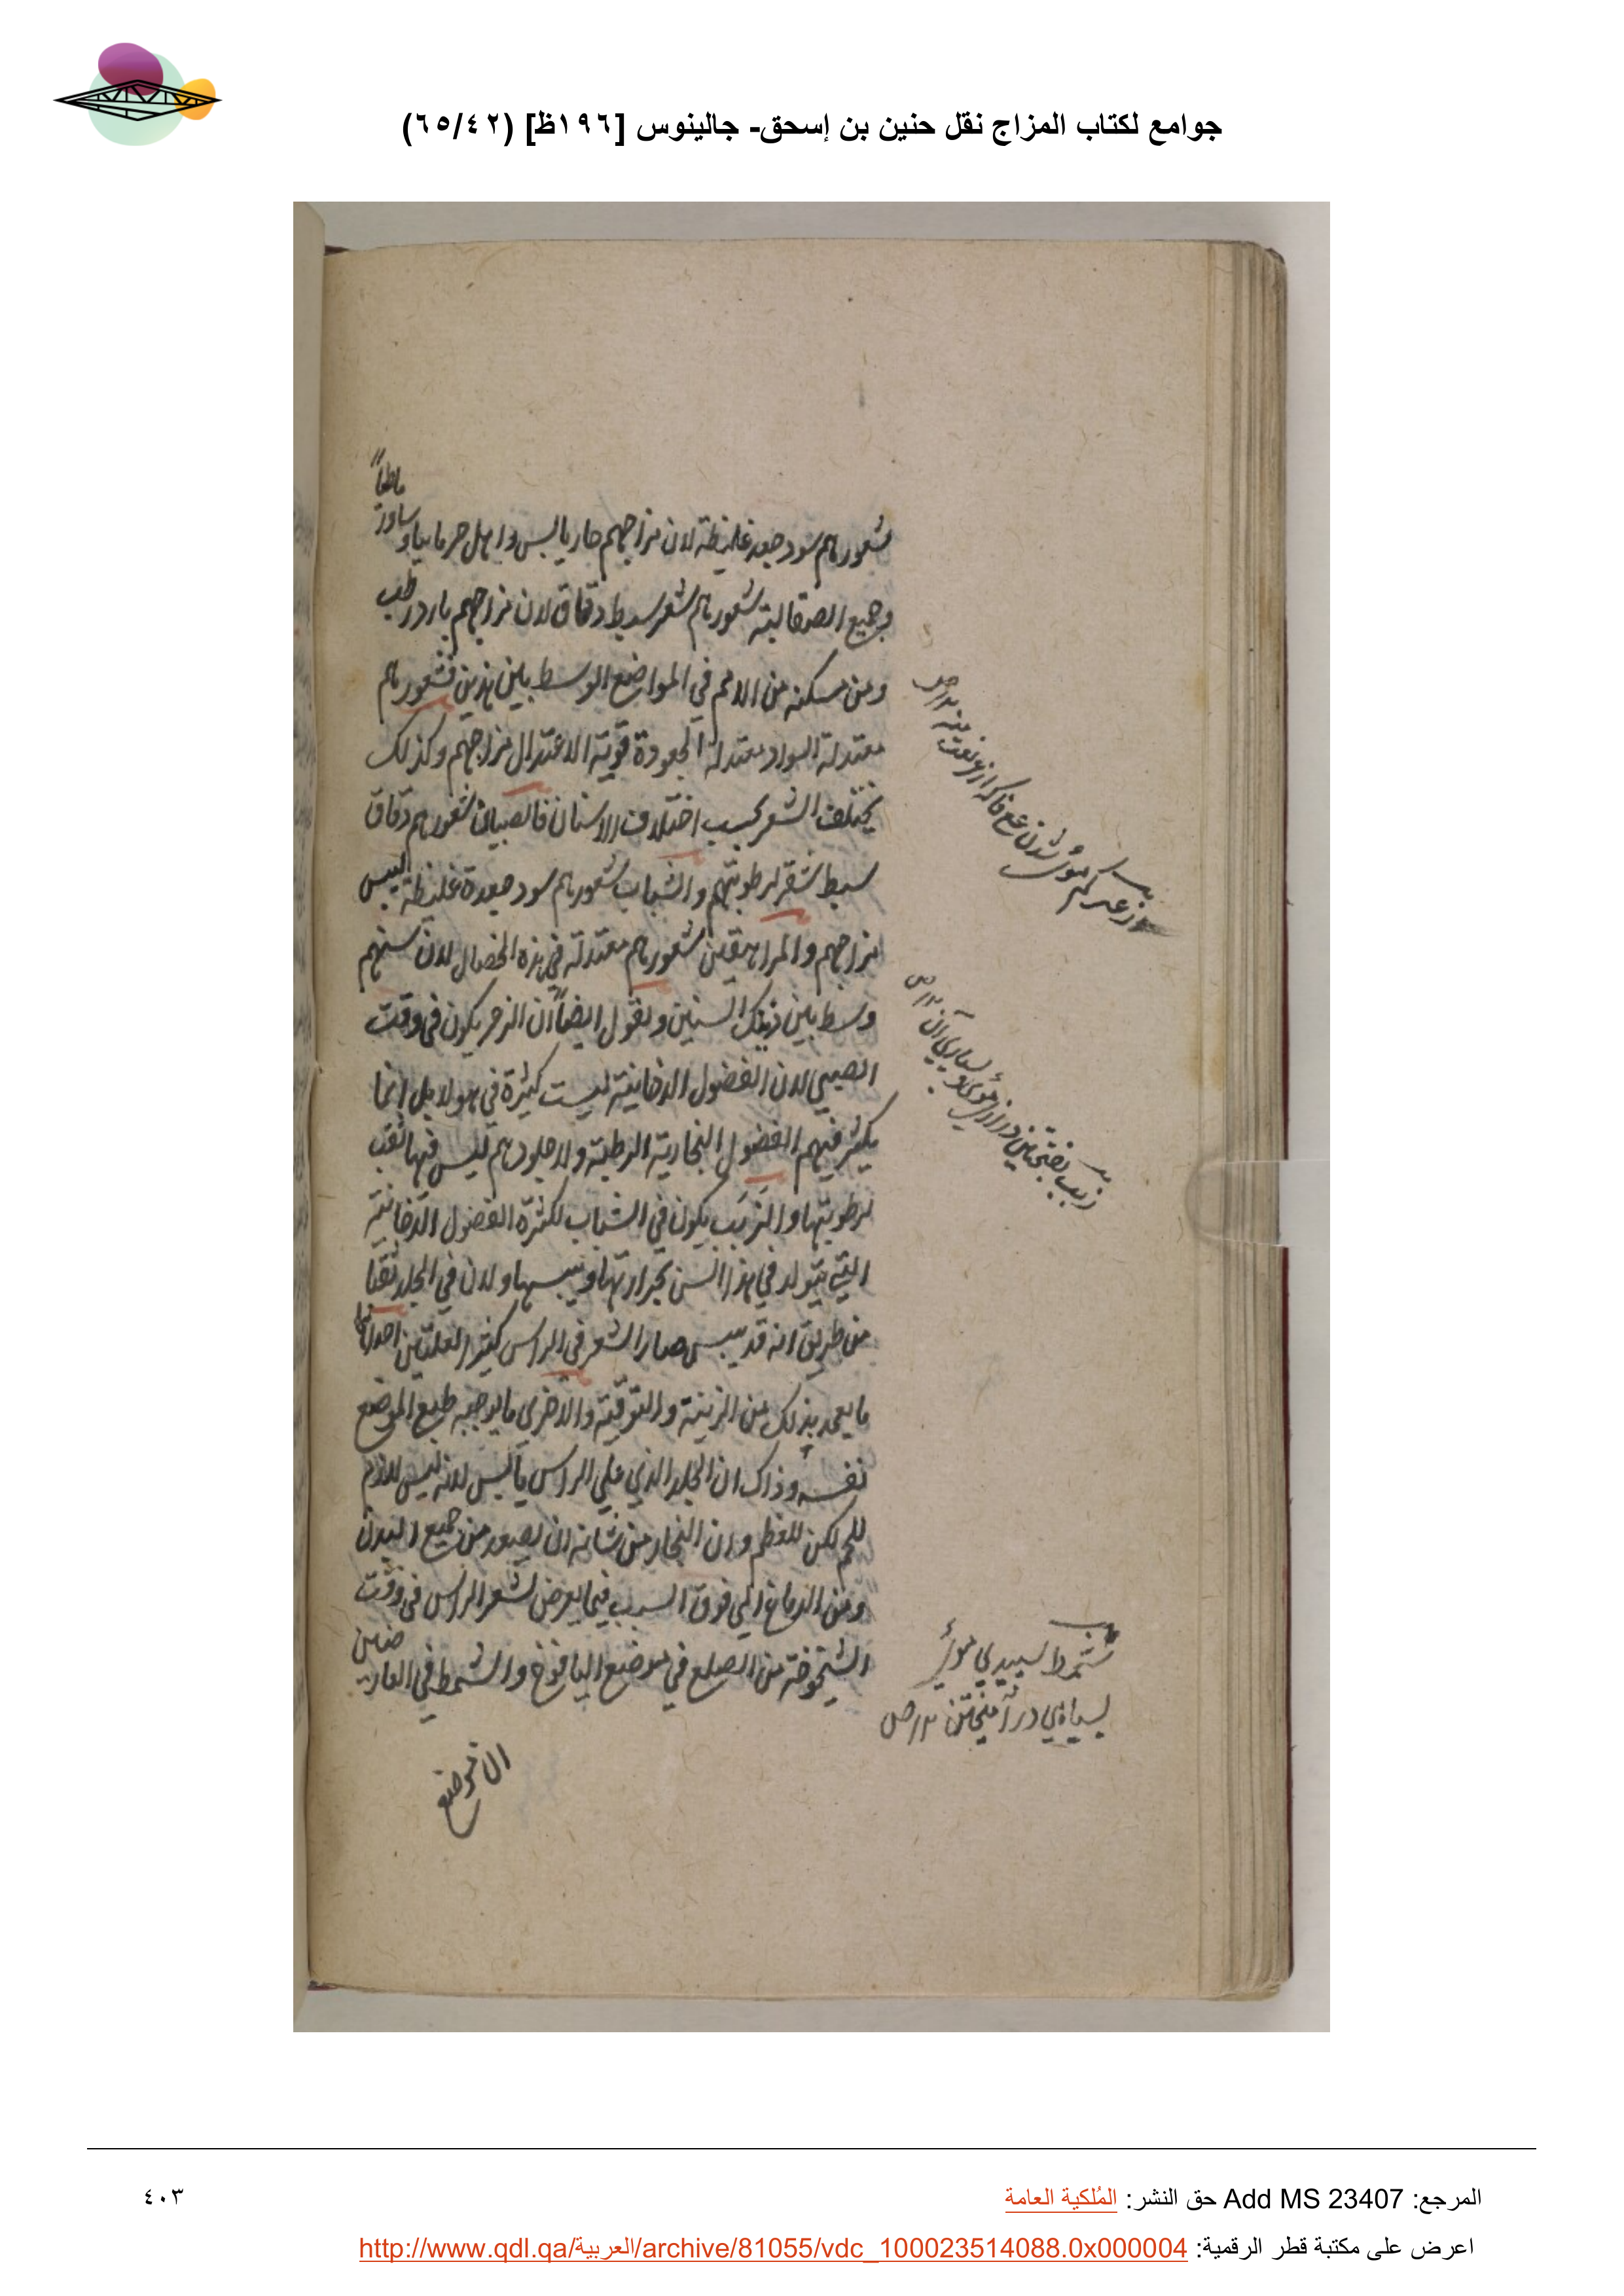 جوامع لكتاب المزاج نقل حنين بن إسحق- جالينوس [١٩٦ظ] (٦٥/٤٢)
شعورهم سود جعد غليظة لان مزاجهم حار يابس واهل جرمانيا و
وجميع الصقالبة شعورهم شعر سبط دقاق لان مزاجهم بارد رطب
ومن مسكنه من الامم في المواضع الوسط بين هذين فشعورهم
معتدلة السواد معتدلة الجعودة قوية لاعتدال مزاجهم وكذلك
يختلف الشعر بحسب اختلاف الاسنان فالصبيان شعورهم دقاق
سبط شقر لرطوبتهم والشباب شعورهم سود جعدة غليظة ليبس
مزاجهم والمراهقين شعورهم معتدلة في هذه الخصال لان سنهم
وسط بين ذينك السنين ونقول ايضاً ان الزعر يكون في وقت
الصبي لان الفضول الدخانية ليست كثيرة في هولا بل انما
يكثر فيهم الفضول البخارية الرطبة ولا جلودهم ليس فيها ثقب
لرطوبتها والزبب يكون في الشباب لكثرة الفضول الدخانية
التي يتولد في هذا السن بحرارتها ويبسها ولان في الجلد ثقبا
من طريق انه قد يبس صار الشعر في الراس كثير لعلتين احداهما
ما يعمد بذلك من الزينة والتوقية والاخرى ما يوجبه طبع الموضع
نفسه وذاك ان الجلد الذي على الراس يابس لانه ليس بلازم
للحم لكن للعظم وان البخار من شانه ان يصعد من جميع البدن
ومن الدماغ الي فوق السبب فيما يعرض لشعر الراس في وقت
الشيخوخة من الصلع في موضع اليافوخ والشمط في
زعر كم موئ شدن
زبب بفتحتين درازي موئ و بسياري آن
شمط سپيدي موئ
بسياهي در آميختن
المرجع: Add MS 23407 حق النشر: المُلكية العامة
٤٠٣
اعرض على مكتبة قطر الرقمية: http://www.qdl.qa/العربية/archive/81055/vdc_100023514088.0x000004